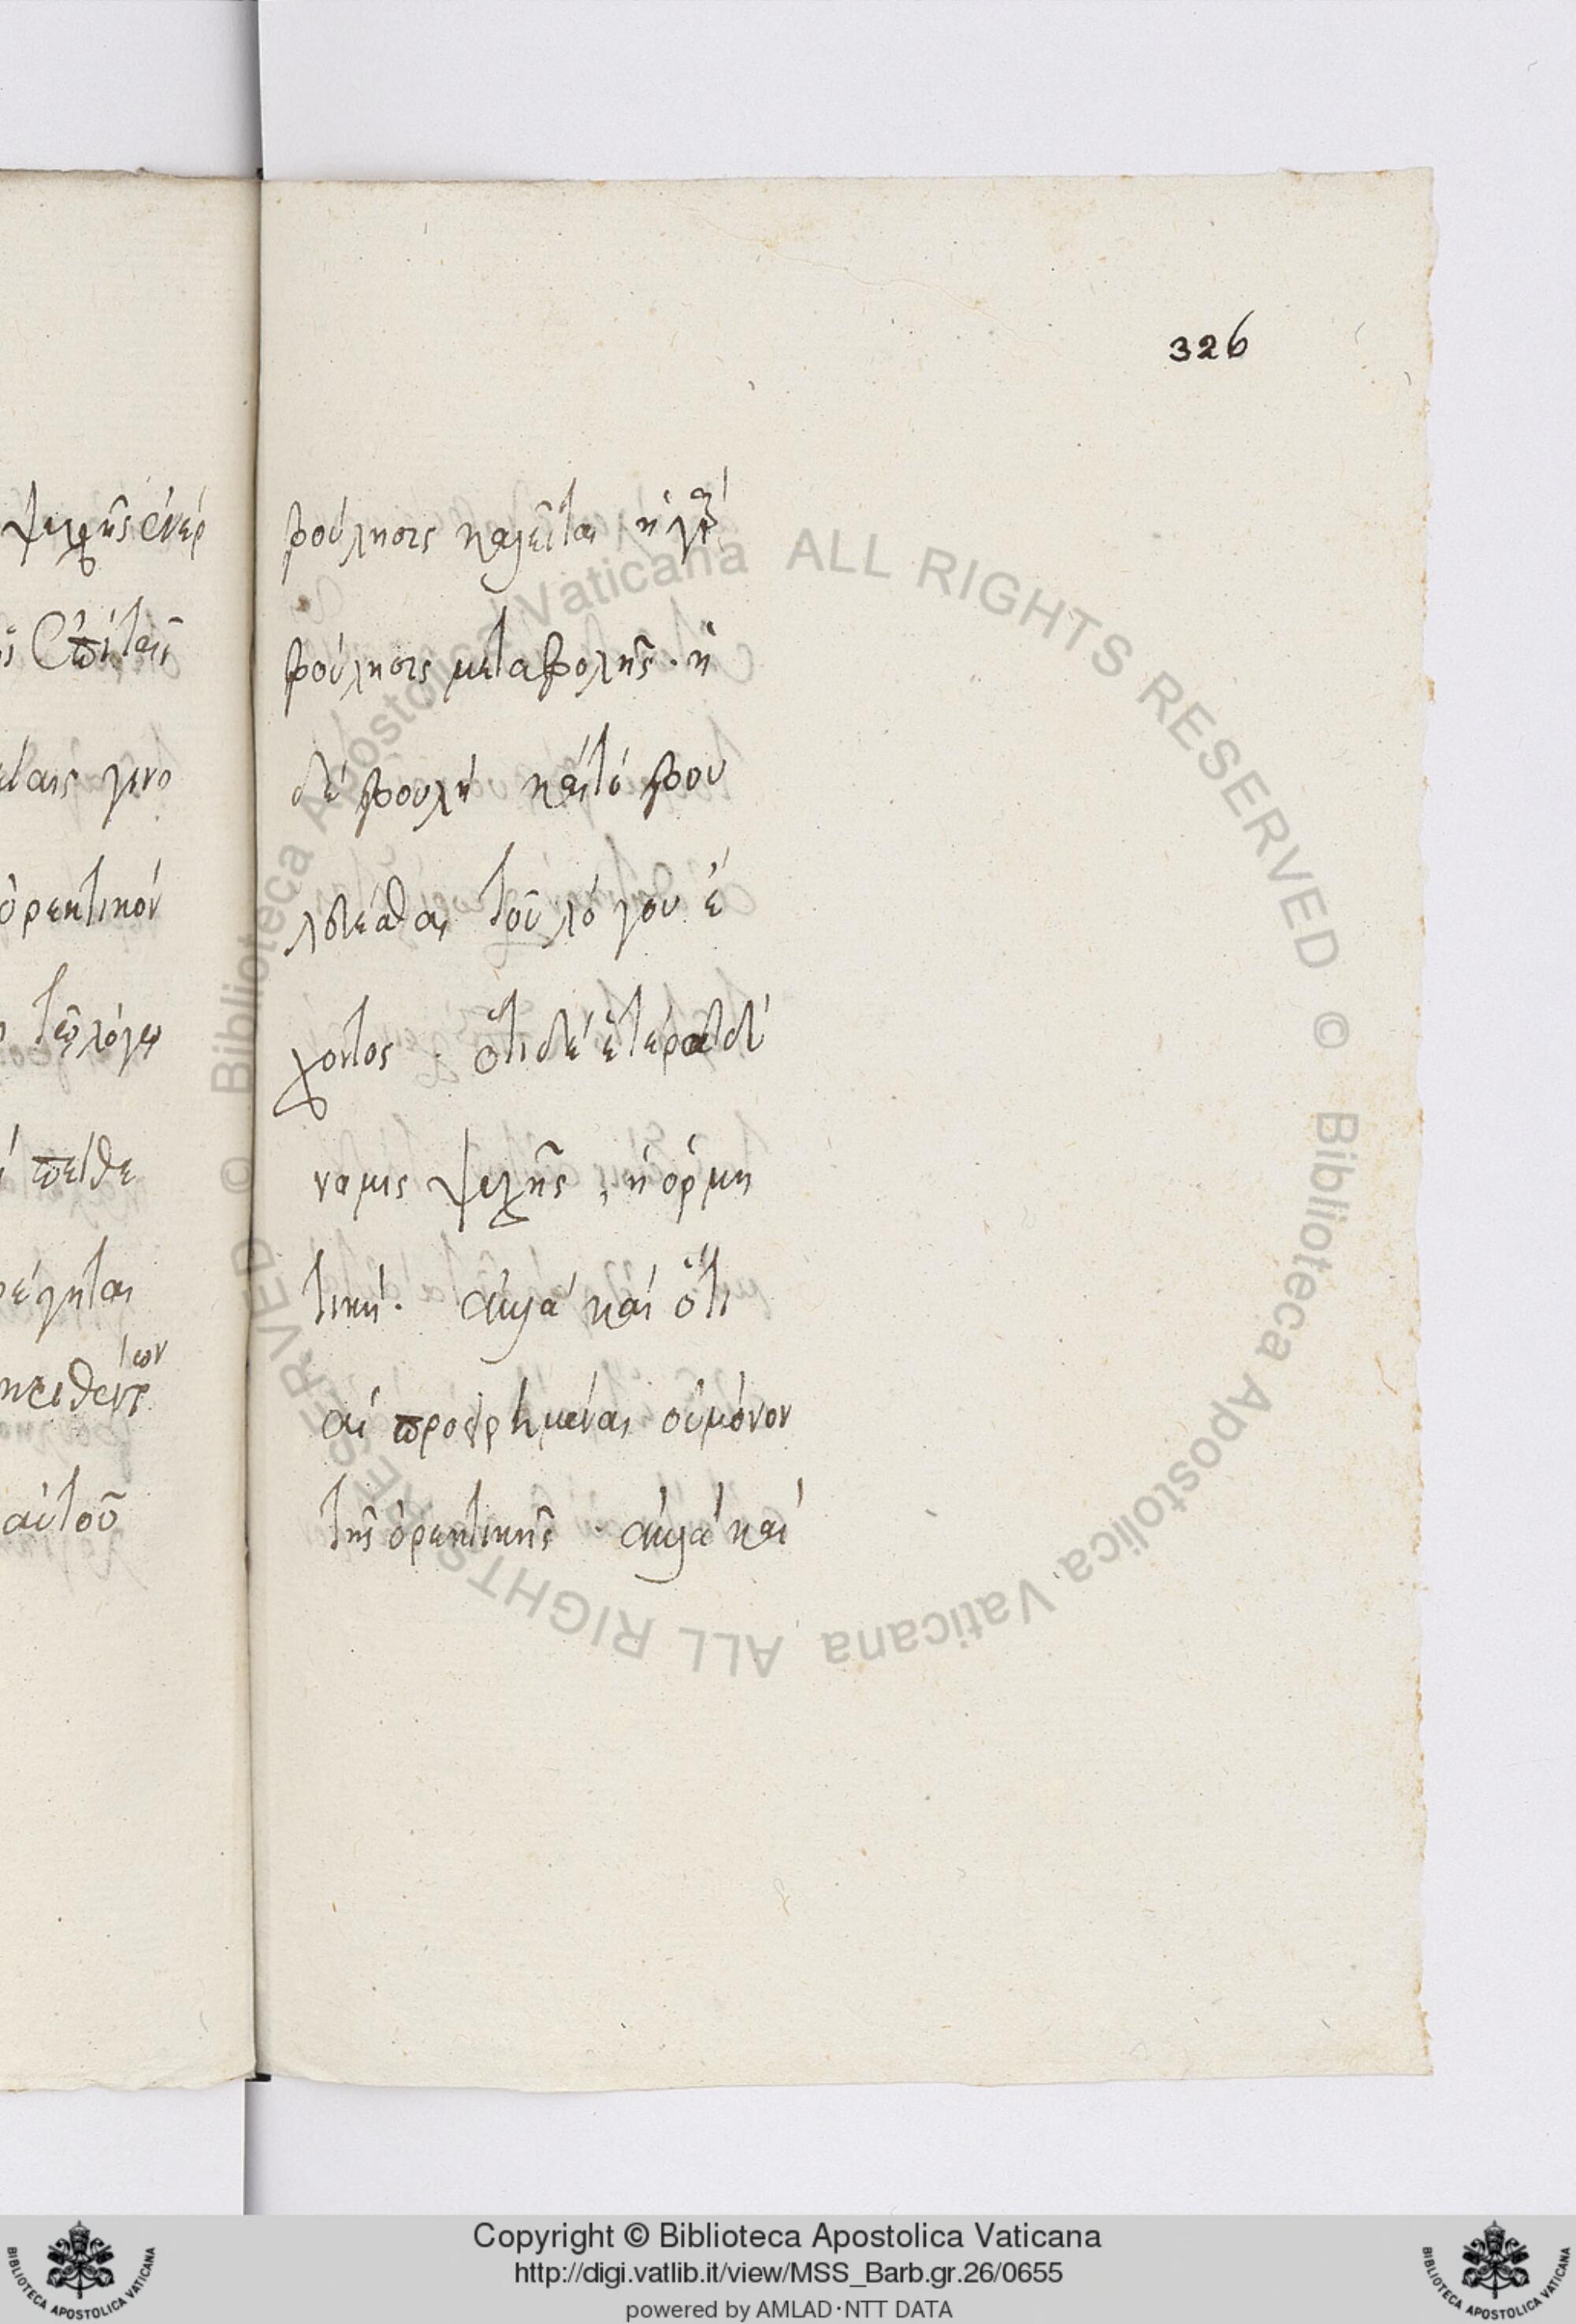 326
ψυχῆς ἐνερ
ἐπὶ ταῖς
γινο
ὀρεκτικόν
τῷ λόγῳ
πείθε
των
αὐτοῦ
βούλησις καλεῖται ἡ
βούλησις μεταβολῆς. ἡ
δὲ βουλὴ καὶ τὸ βου
τοῦ λόγου ἔ
χοντος. ὅτι δὲ ἑτέρα δύ
ναμις ψυχῆς, ἡ ὁρμη
τικὴ. ἀλλὰ καὶ ὅτι
αἱ προειρημέναι οὐ μόνον
τῆς ὀρεκτικῆς. ἀλλὰ καὶ
© Biblioteca Apostolica Vaticana ALL RIGHTS RESERVED © Biblioteca Apostolica Vaticana ALL RIGHTS RESERVED
Copyright © Biblioteca Apostolica Vaticana
http://digi.vatlib.it/view/MSS_Barb.gr.26/0655
powered by AMLAD·NTT DATA
BIBLIOTECA APOSTOLICA VATICANA
BIBLIOTECA APOSTOLICA VATICANA